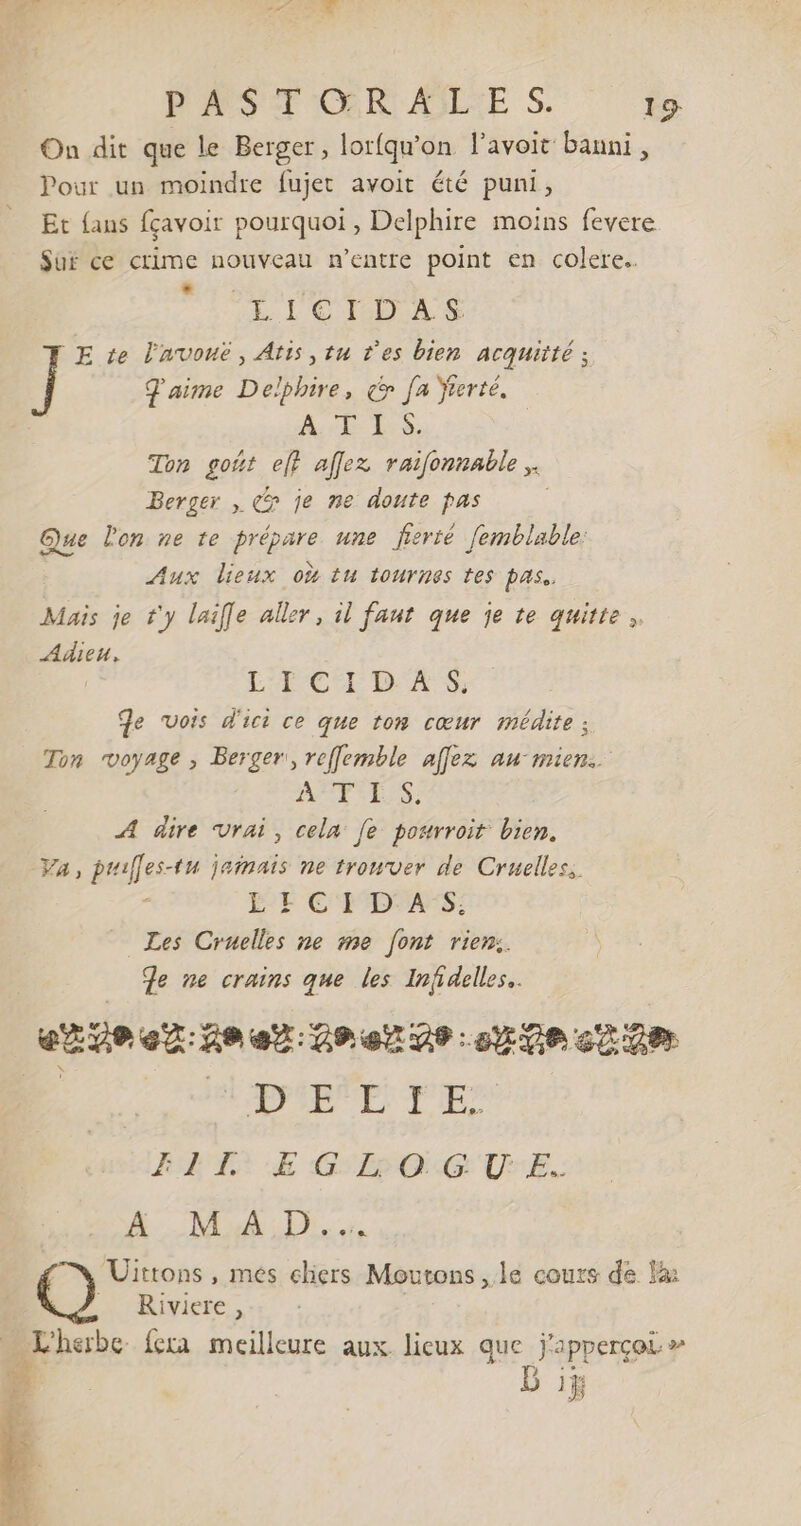 PASTORALES. 19
On dit que le Berger, lorſqu'on l'avoit banni,
Pour un moindre ſujet avoit été puni,
Et ſans ſçavoir pourquoi, Delphire moins ſevere
Sur ce crime nouveau n'entre point en colere.
LICIDAS
JE te l'avouë, Atis, tu t'es bien acquitté;
J'aime Delphire, & ſa fierté.
ATIS.
Ton goût eſt aſſez raiſonnable,
Berger, & je ne doute pas
Que l'on ne te prépare une fierté ſemblable
Aux lieux où tu tournes tes pas.
Mais je t'y laiſſe aller, il faut que je te quitte,
Adieu.
LICIDAS,
Je vois d'ici ce que ton cœur médite;
Ton voyage, Berger, reſſemble aſſez au mien.
ATIS.
A dire vrai, cela ſe pourroit bien.
Va, puiſſes-tu jamais ne trouver de Cruelles.
LICIDAS.
Les Cruelles ne me font rien;
Je ne crains que les Infidelles.
DELIE.
III. EGLOGUE.
A MAD...
QUittons, mes chers Moutons, le cours de la
Riviere,
L'herbe ſera meilleure aux lieux que j'apperçoi
B ij